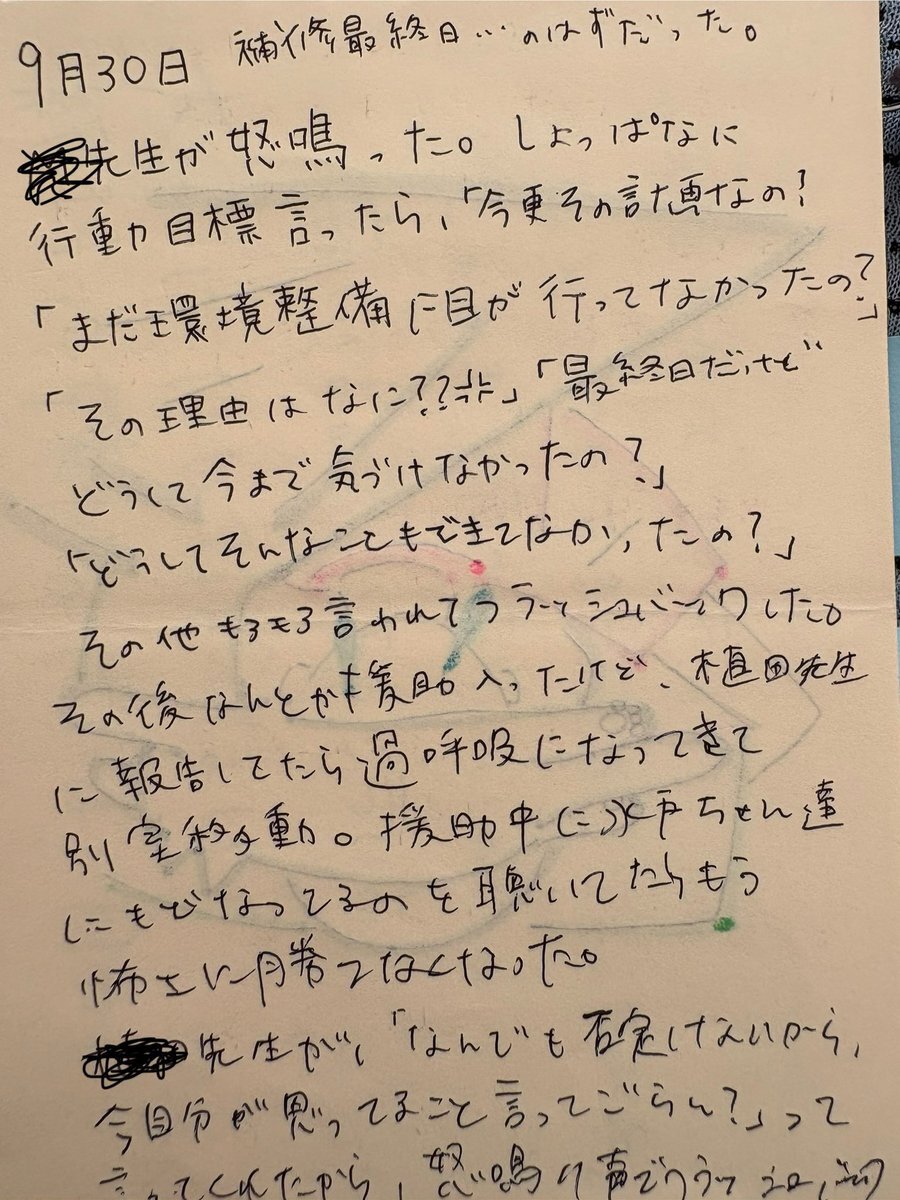 9月30日 補修最終日…のはずだった。
先生が怒鳴った。しょっぱなに
行動目標言ったら、「今更その計画なの?
「まだ環境整備に目が行ってなかったの?」
「その理由はなに??」「最終日だけど
どうして今まで気づけなかったの?」
「どうしてそんなこともできてなかったの?」
その他もろもろ言われてフラッシュバックした。
その後なんとか援助入ったけど、植田先生
に報告してたら過呼吸になってきて
別室移動。援助中に水戸ちゃん達
にもどなってるのを聴いてたらもう
怖さに勝てなくなった。
先生が、「なんでも否定しないから、
今自分が思ってること言ってごらん?」って
言ってくれたから、怒鳴り声でフラッシュ